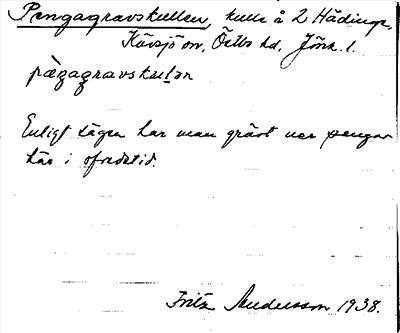 Pengagravskullen, kulle å 2 Hädinge,
Kävsjö sn, Östbo hd, Jönk. l.
pæŋagravskulən
Enligt sägen har man grävt ner pengar
här i ofredstid.
Fritz Andersson 1938.